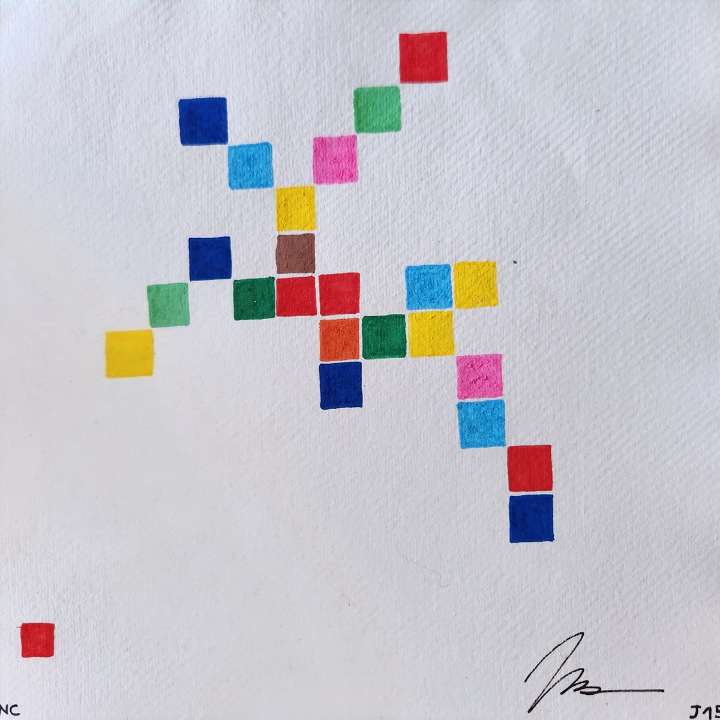 NC
J15